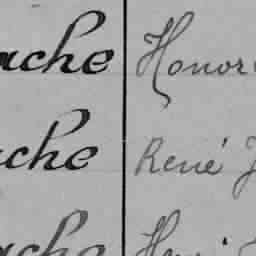 ache Honor
ache René J
ache Henri